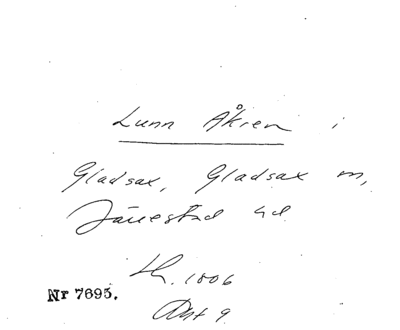 Lunn Åkren i
Gladsax, Gladsax sn,
Järrestad hd
Lh. 1806
Nr 7695.
Akt 9